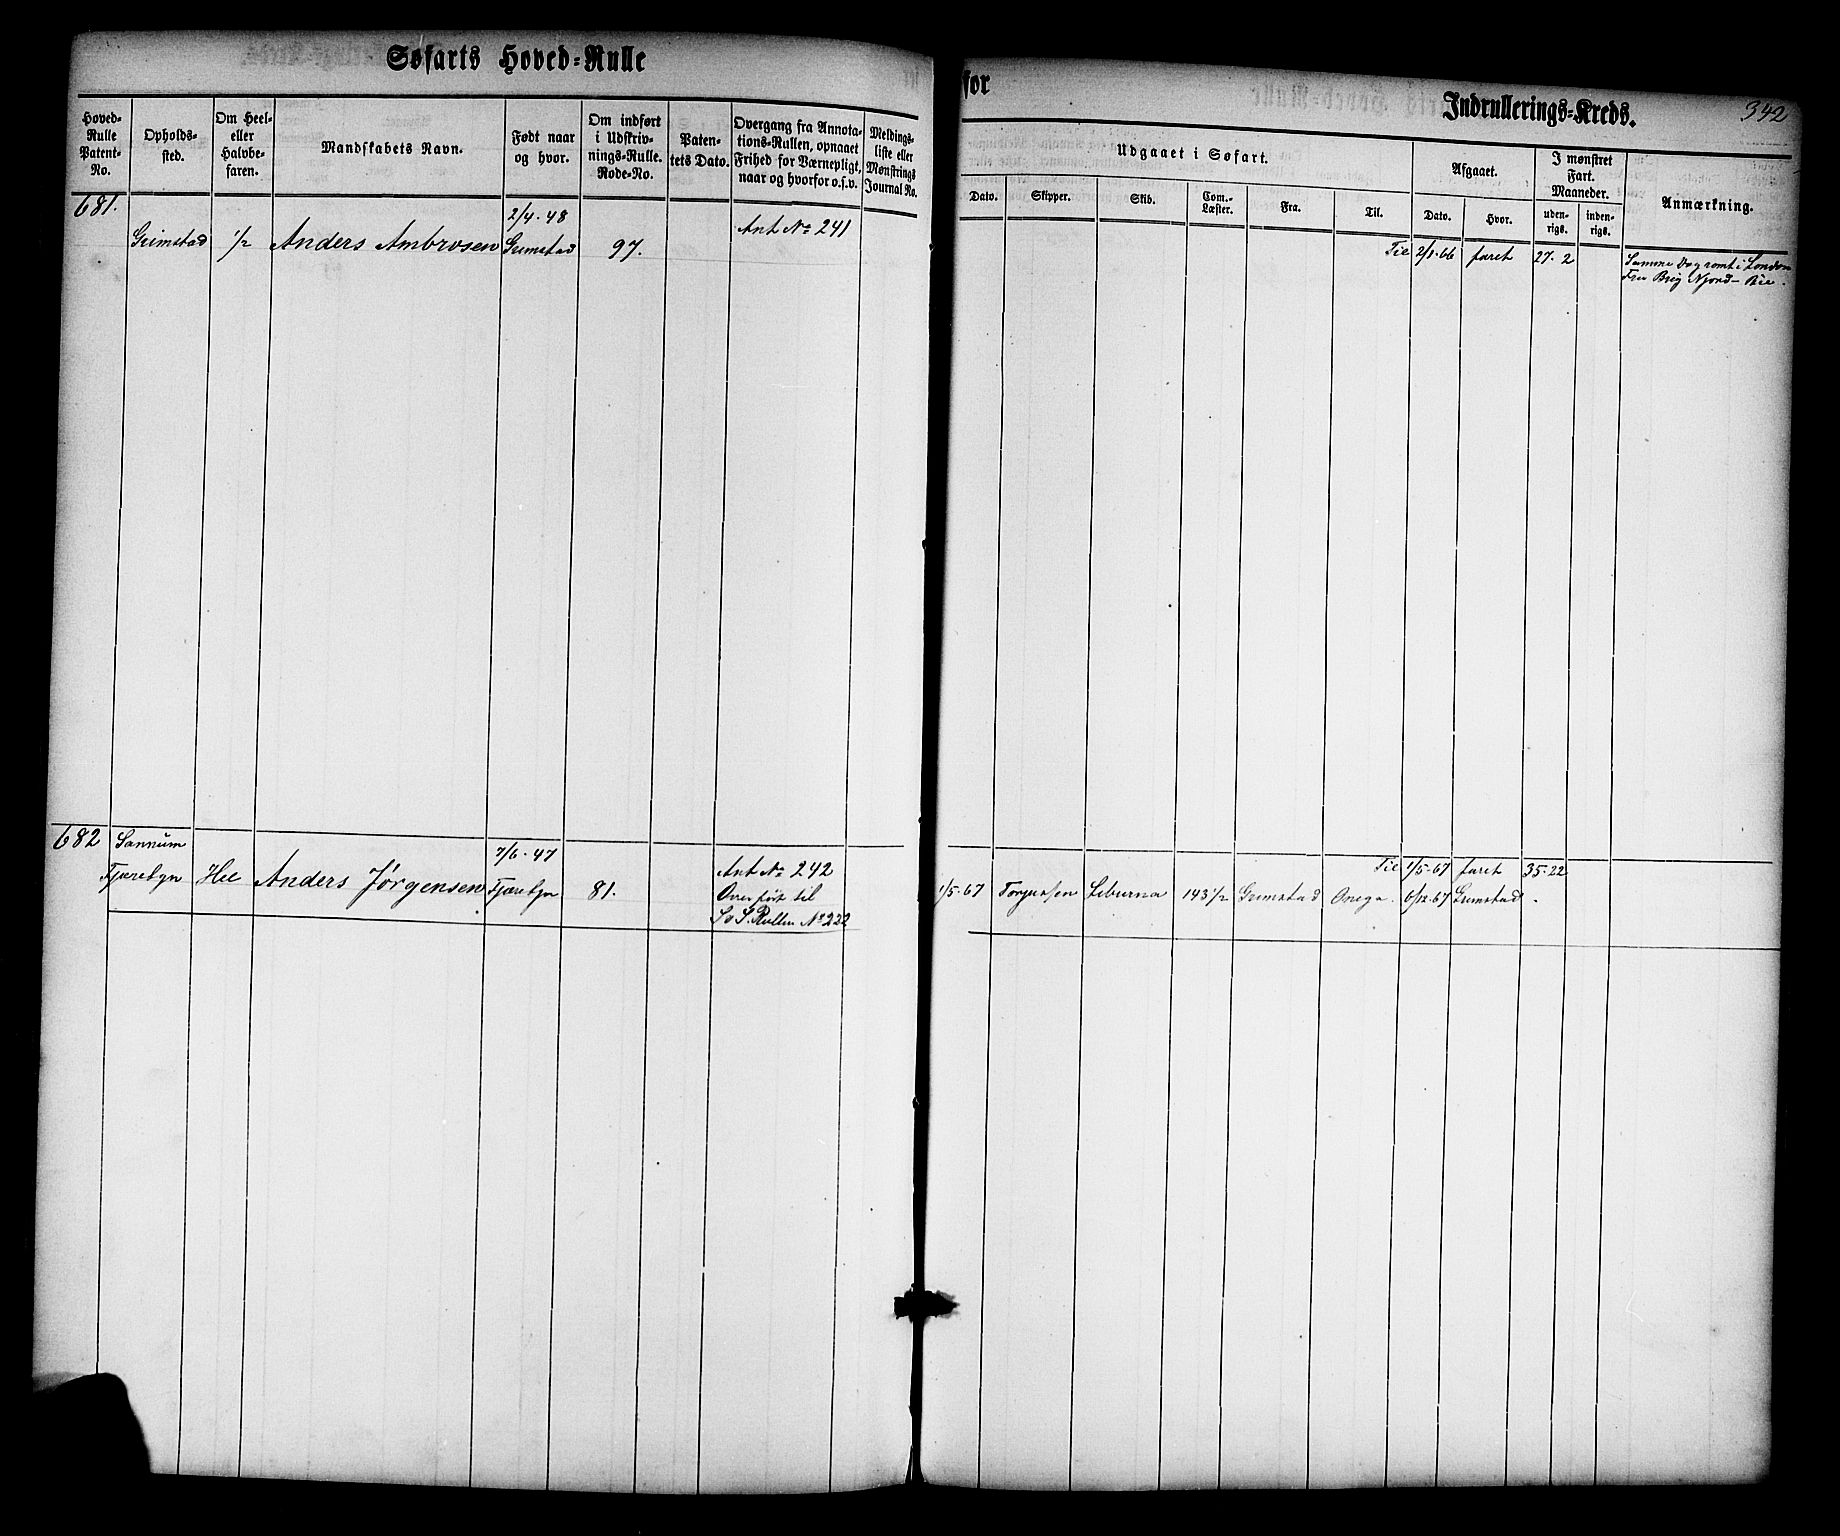 Søfarts Hoved-Rulle
Hoved-
Rulle
Patent-
No.
Opholds-
sted.
Om Heel-
eller
Halvbe-
faren.
Mandskabets Navn.
Født naar
og hvor.
Om indført
i Udskriv-
nings-Rulle.
Rode-No.
Paten-
tets Dato.
Overgang fra Annota-
tions-Rullen, opnaaet
Frihed for Værnepligt,
naar og hvorfor o.s.v.
Meldings-
liste eller
Mønstrings
Journal No.
681.
Grimstad
1/2
Anders Ambrosen
2/4.48
Grimstad
97.
Ant No 241
682
Sannum
Fjærebgn
Hel
Anders Jørgensen
7/6.47
Fjærebgn
81.
Ant No 242
Overført til
S. Rullen No 222
for
Indrullerings-Kreds.
342
Udgaaet i Søfart.
Dato.
Skipper.
Skib.
Com.-
Læster.
Fra.
Til.
Afgaaet.
Dato.
Hvor.
I mønstret
Fart.
Maaneder.
uden-
rigs.
inden-
rigs.
Anmærkning.
Til 2/1.66 faret 27.2
Samme Dag rømt i London
Fra Brig Njord
Til 1/5.67 faret 35.22
1/5.67 Torjussen Liburna 143 1/2 Grimstad Onega. 6/12.67 Grimstad.